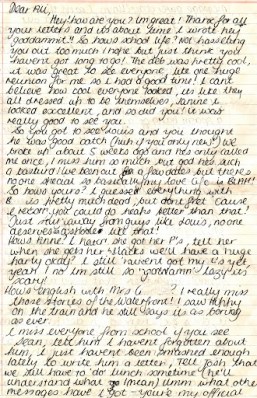 Dear Ali,
Hey! how are you? I'm great! Thanx for all
your letters and it's about time I wrote hey
"goddamnit"! So hows school life? Not hassling
you out too much I hope but just think you
haven't got long to go! The deb was pretty cool,
it was great to see everyone, like one huge
reunion for me so I had a good time! I cant
believe how cool everyone looked, its like they
all dressed up to be themselves, Janine
looked excellent, and so did you! it was
really good to see you.
So you got to see Louis and you thought
he was good catch (huh if you only new!) We
broke up about 5 weeks ago and hes only called
me once, I miss him so much but god hes such
a bastard! I've been out for a few dates but there's
no one special so basically my love life is BLAH!
So hows yours? I guess everything with
B is pretty much dead, but dont fret 'cause
I reckon you could do heaps better than that!
Just stay away from guys like Louis, no one
deserves assholes like that!
Hows Anne? I hear she got her P's, tell her
when she gets her blacks we'll have a huge
party ok! I still haven't got my L's yet
yeah! no I'm still so "gotdamn" lazy its
scary!
Hows English with Mrs G ? I really miss
those stories of the Waterfront! I saw
on the train and he still says its as boring
as ever.
I miss everyone from school if you see
Sean, tell him I havent forgotten about
him, I just havent been smashed enough
lately to write him a letter, Tell Josh that
we still have to 'do lunch sometime' (he'll
understand what I mean) Umm what other
messages have I got - your'e my official